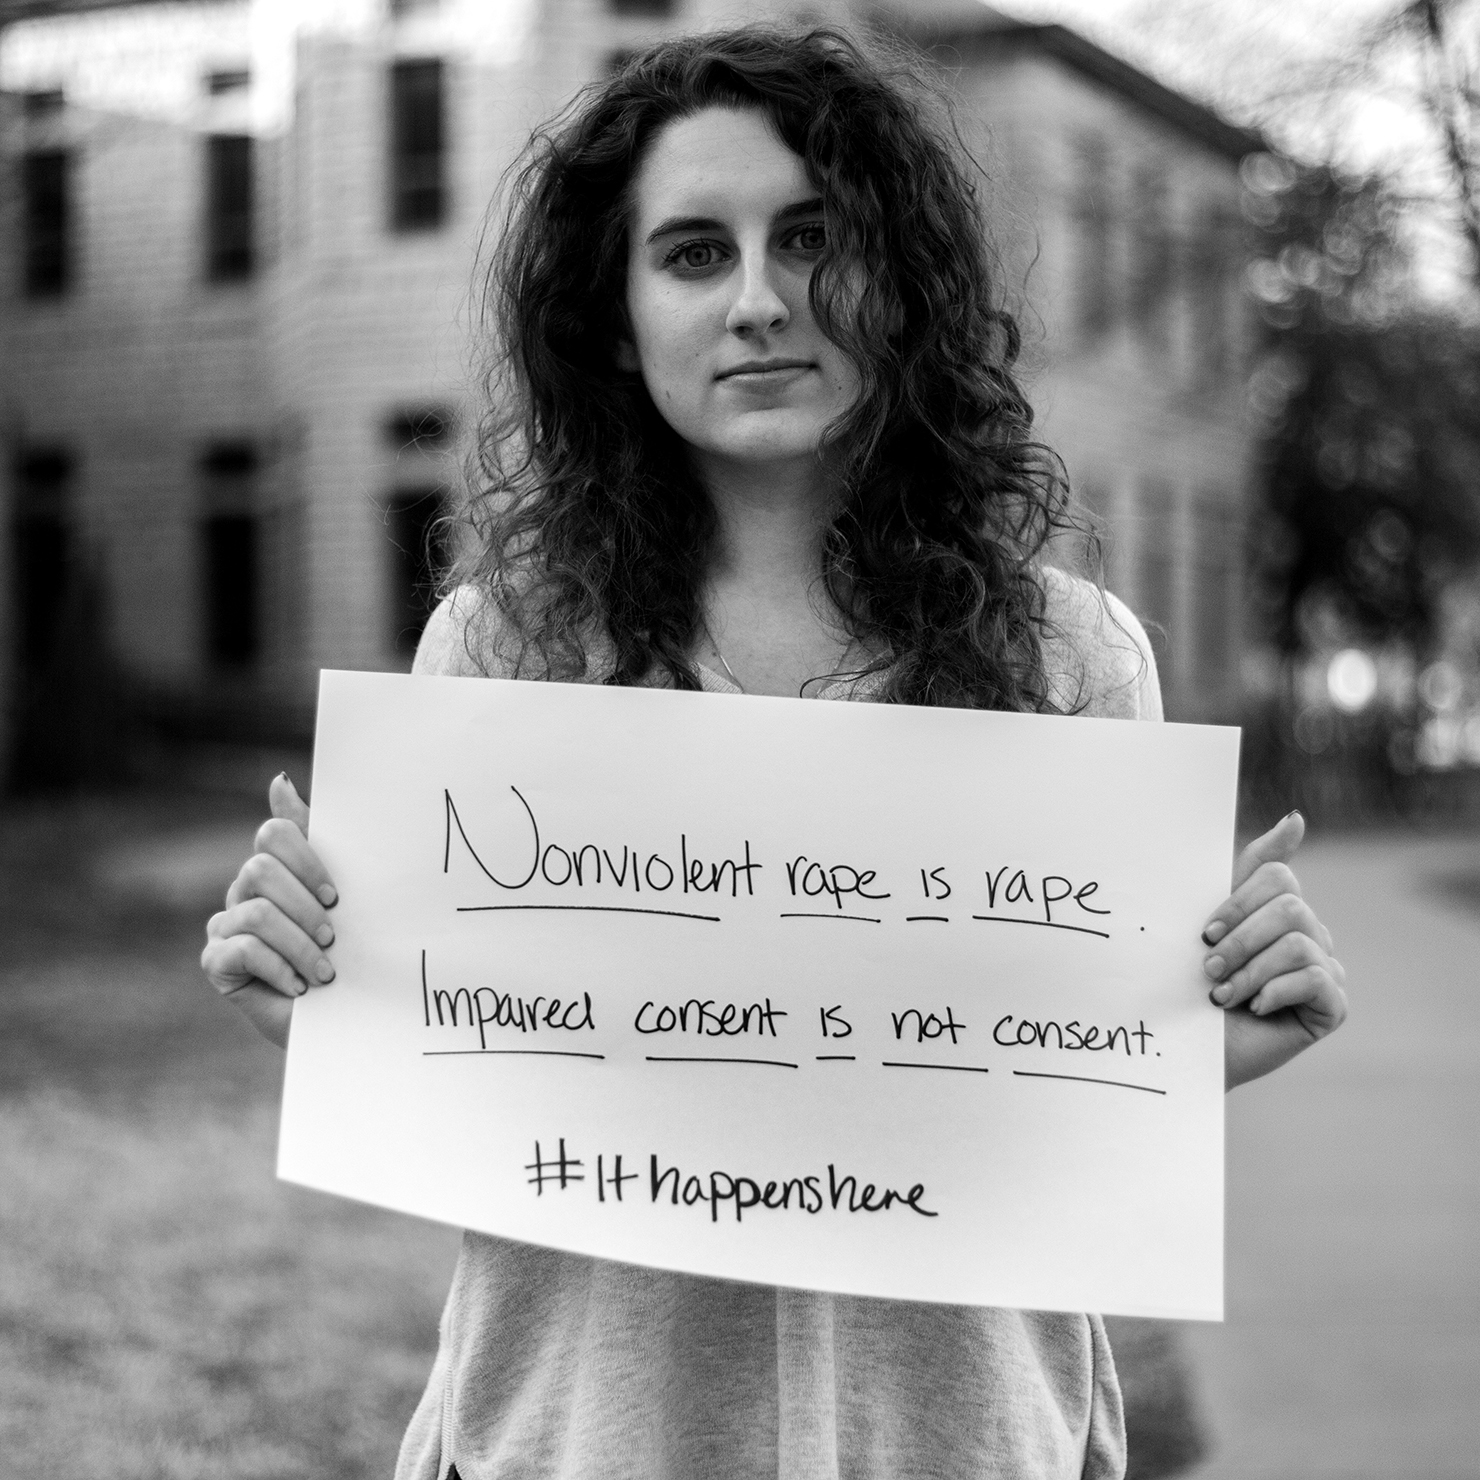 Nonviolent rape is rape.
Impaired consent is not consent.
#Ithappenshere